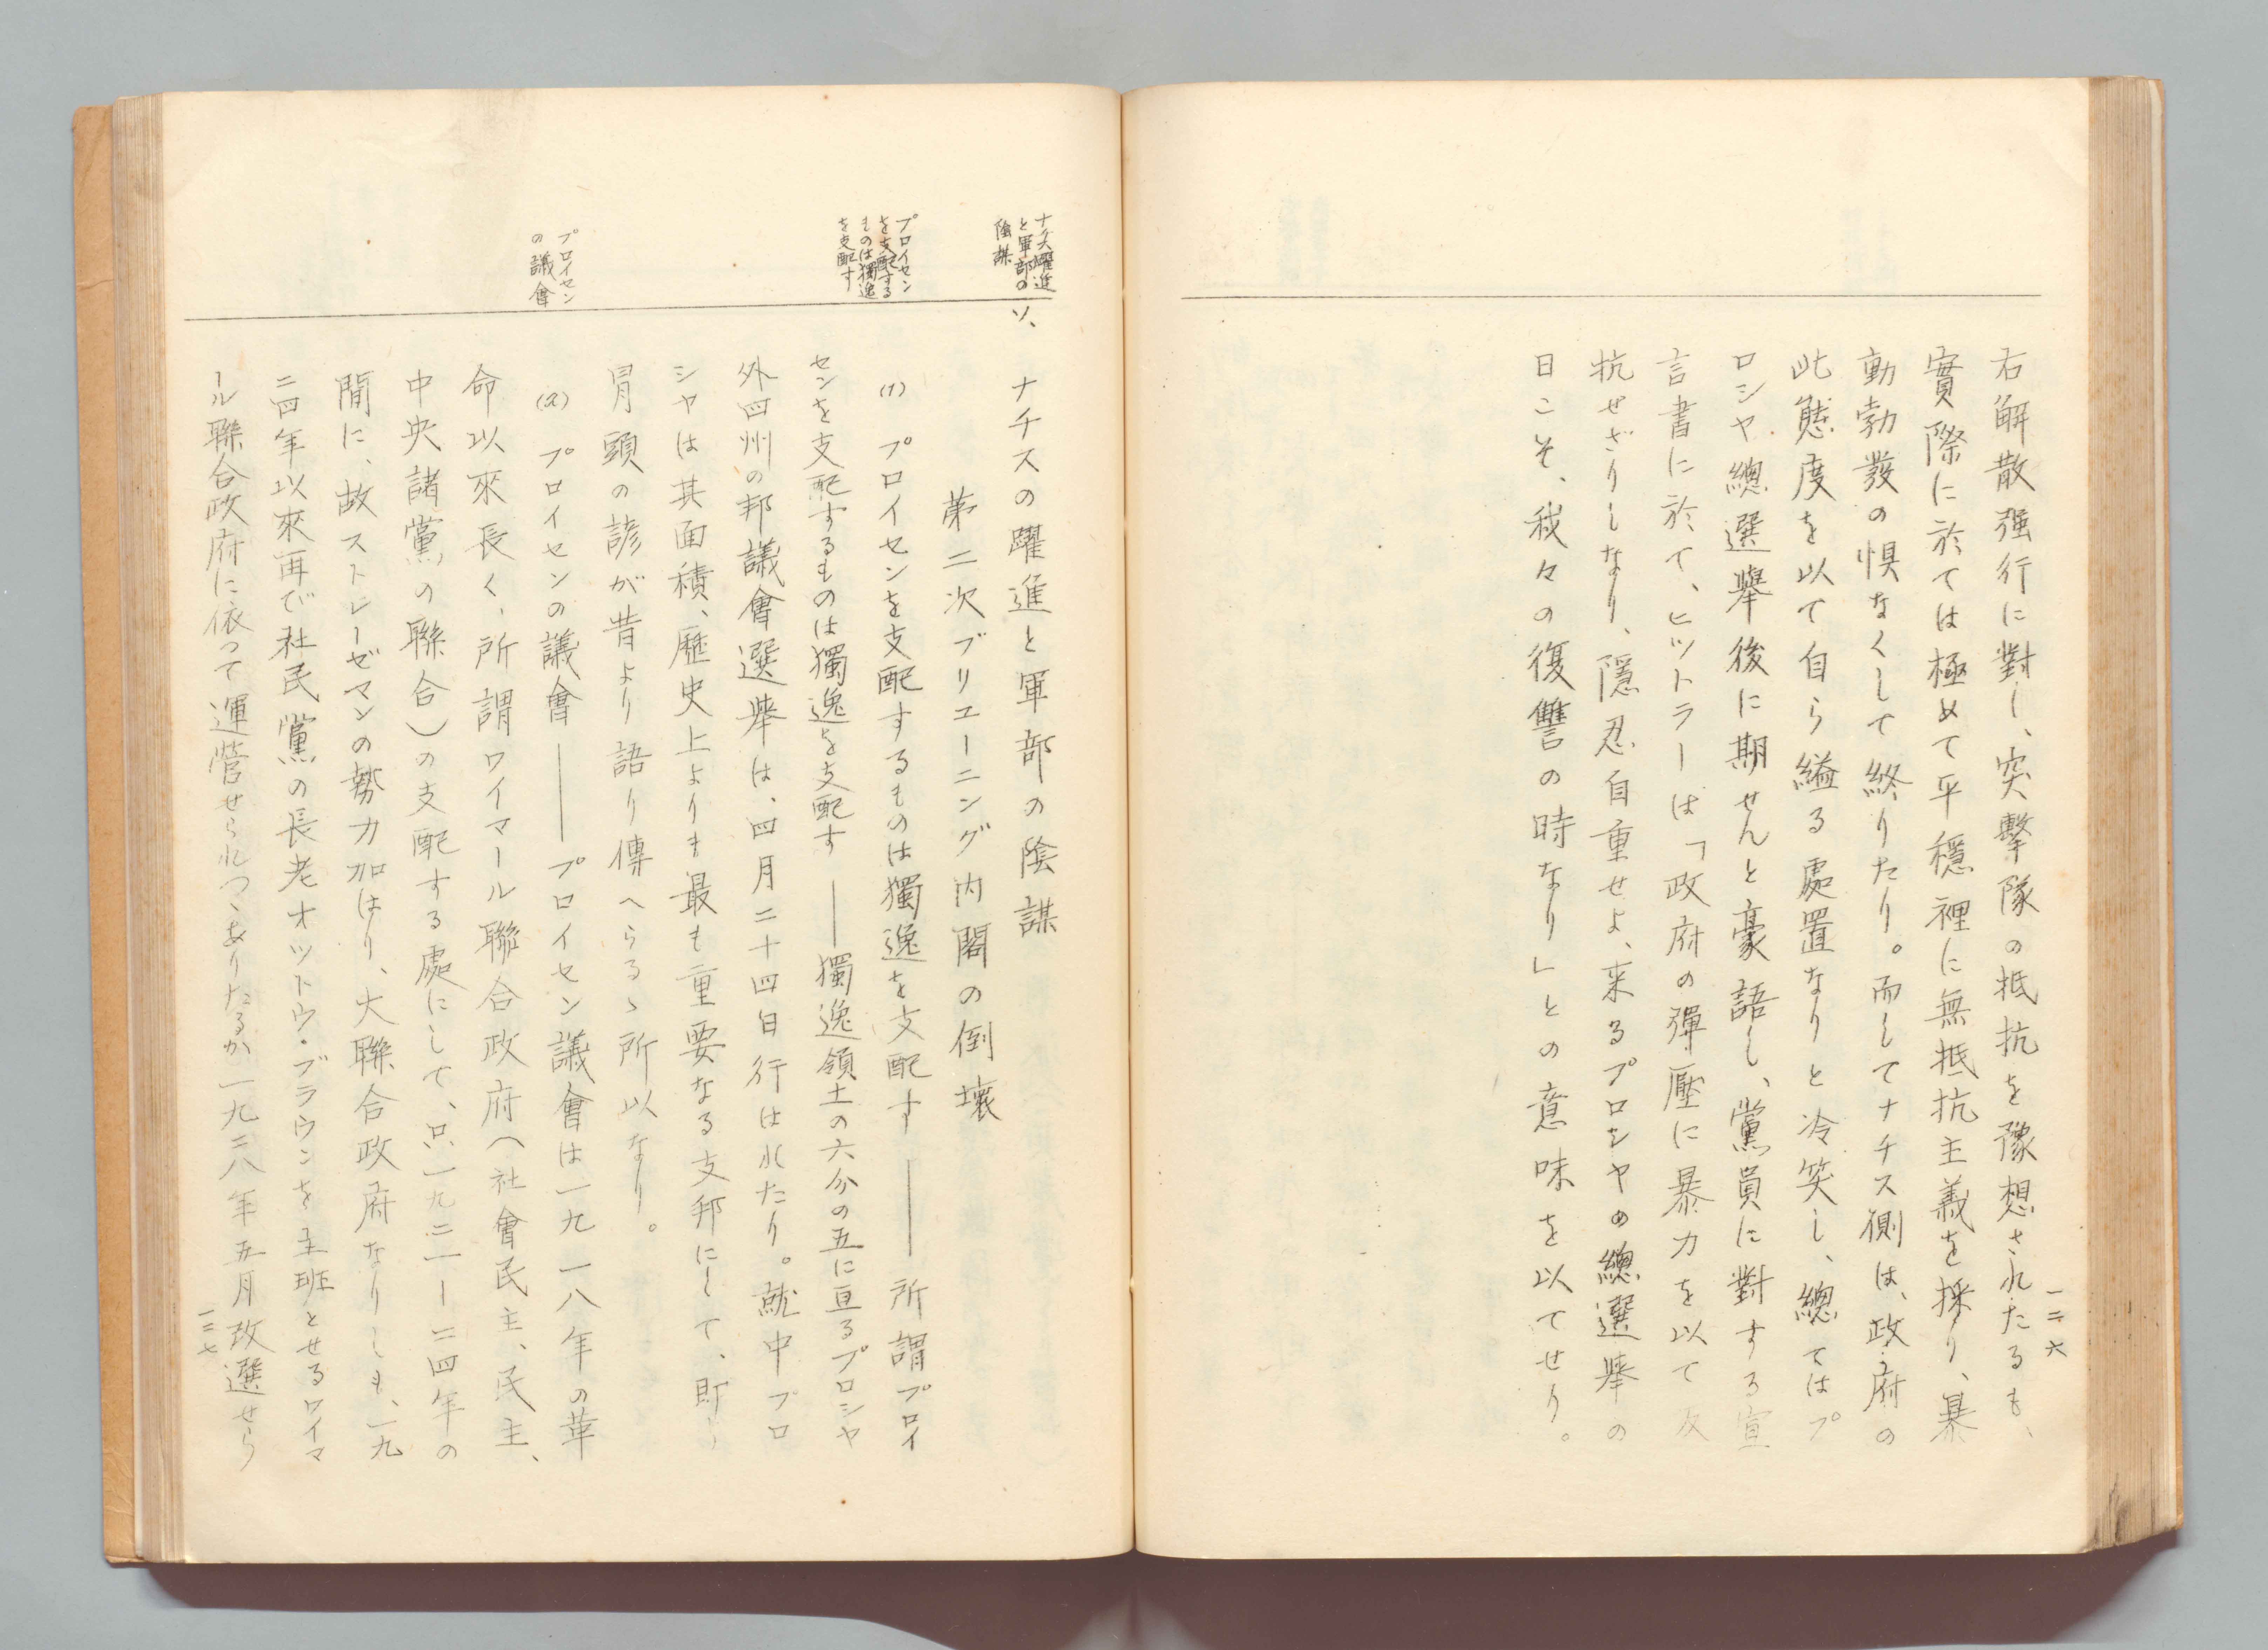 右解散强行に對し、突擊隊の抵抗を豫想されたるも、
實際に於ては極めて平穩裡に無抵抗主義を採り、暴
動勃發の惧なくして終りたり。而してナチス側は、政府の
此態度を以て自ら縊る處置なりと冷笑し、總てはプ
ロシヤ總選擧後に期せんと豪語し、黨員に對する宣
言書に於て、ヒットラーは「政府の彈壓に暴力を以て反
抗せざりしなり、隱忍自重せよ、来るプロシヤの總選擧の
日こそ、我々の復讐の時なり」との意味を以てせり。
一二六
ナチス躍進
と軍部の
陰謀
ソ、ナチスの躍進と軍部の陰謀
第二次ブリユーニング内閣の倒壞
プロイセン
を支配する
ものは獨逸
を支配す
(1) プロイセンを支配するものは獨逸を支配す——所謂プロイ
センを支配するものは獨逸を支配す——獨逸領土の六分の五に亘るプロシヤ
外四州の邦議會選擧は、四月二十四日行はれたり。就中プロ
シヤは其面積、歷史上よりも最も重要なる支邦にして、即ち
冐頭の諺が昔より語り傳へらるゝ所以なり。
プロイセン
の議會
(2) プロイセンの議會——プロイセン議會は一九一八年の革
命以來長く、所謂ワイマール聯合政府(社會民主、民主、
中央諸黨の聯合)の支配する處にして、只一九二一ー二四年の
間に、故ストレーゼマンの勢力加はり、大聯合政府なりしも、一九
二四年以來再び社民黨の長老オットウ・ブラウンを主班とせるワイマ
ール聯合政府に依つて運營せられつゝありたるが一九二八年五月改選せら
一二七